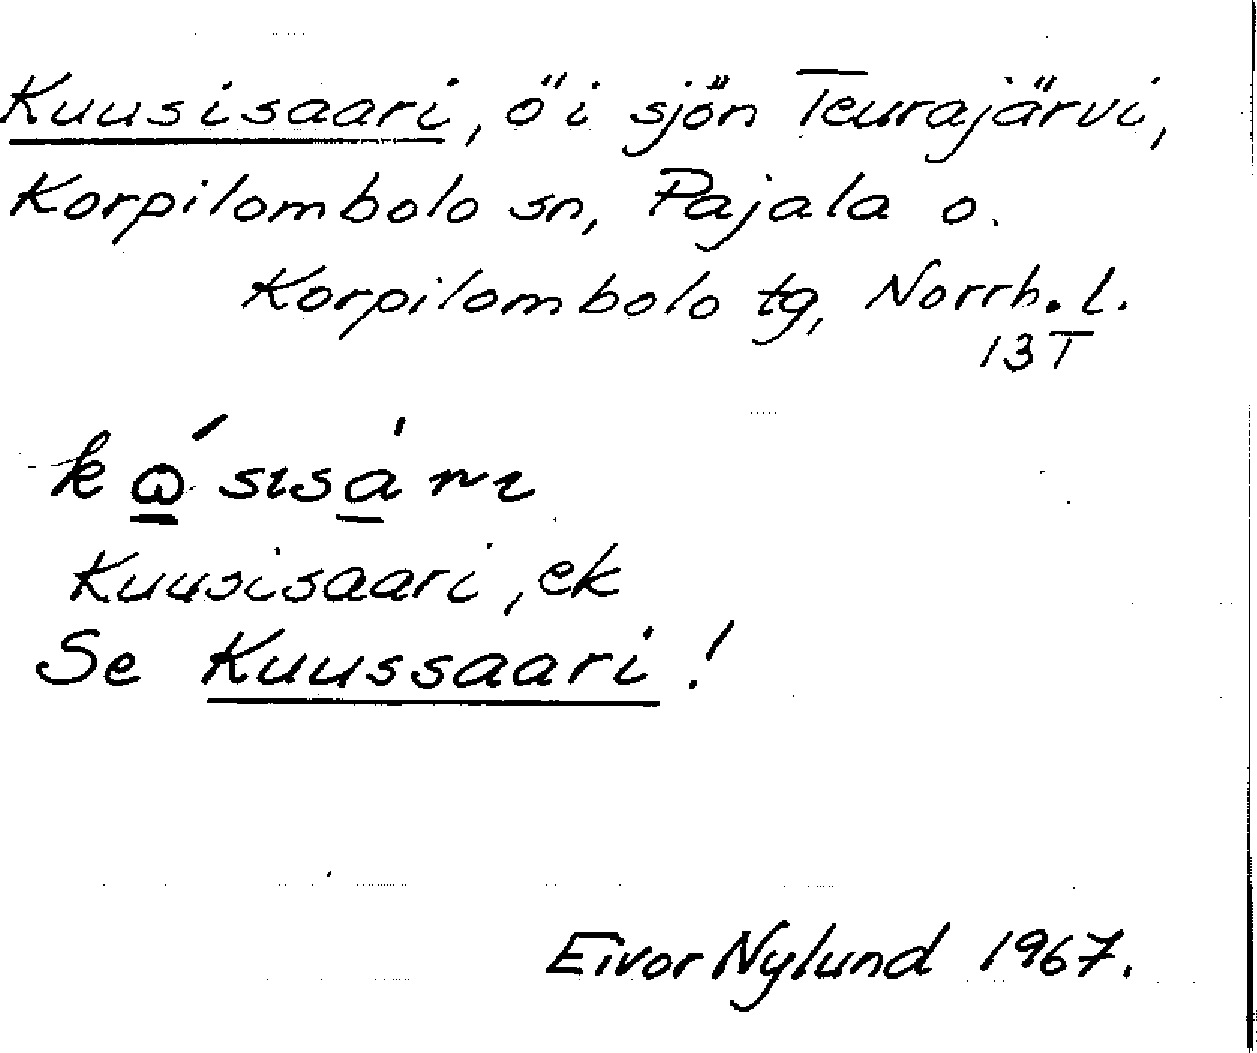 Kuusisaari, ö i sjön Teurajärvi,
Korpilombolo sn, Pajala o.
Korpilombolo tg, Norrb. l.
13T
kώ̱sısà̱rı
Kuusisaari, ek
Se Kuussaari!
Eivor Nylund 1967.